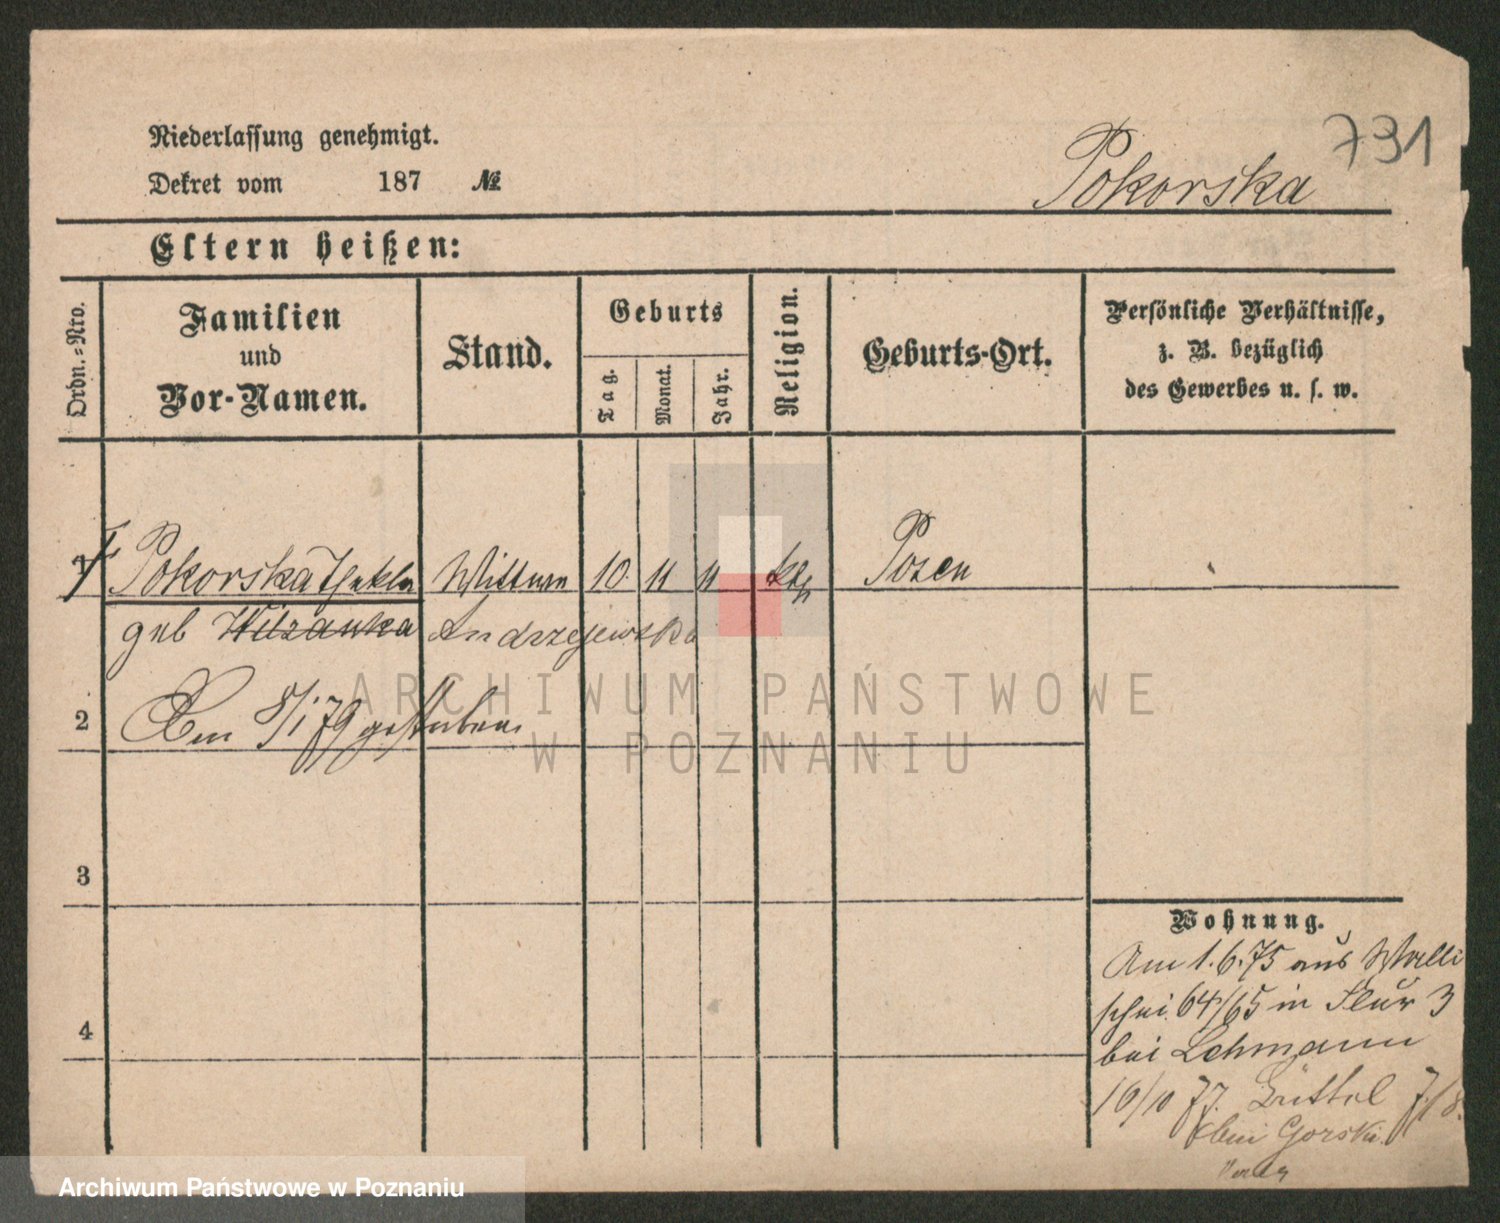 731
Niederlassung genehmigt.
Dekret vom 187 №
Pokorska
Eltern heißen:
Ordn.=Nro.
Familien
und
Vor-Namen.
Stand.
Geburts
Tag.
Monat.
Jahr.
Religion.
Geburts-Ort.
Persönliche Verhältnisse,
z. B. bezüglich
des Gewerbes u. s. w.
1 Pokorska Thekla Wittwe 10. 11 11 kth Posen
geb Wilzanka Andrzejewska
2 Am 8/1 79 gestorben
3
4
Wohnung.
Am 1.6.75 aus Walli
schei 64/65 in Flur 3
bei Lehmann
16/10 77. Büttel 7/8.
bei Gorski
ARCHIWUM PAŃSTWOWE
W POZNANIU
Archiwum Państwowe w Poznaniu